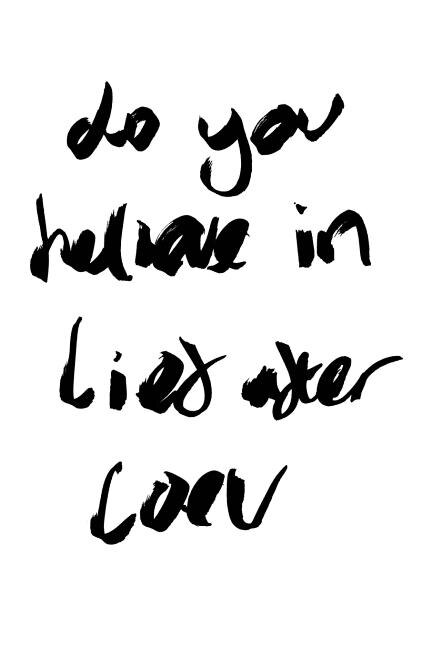 do you
beliave in
Lies after
Loev